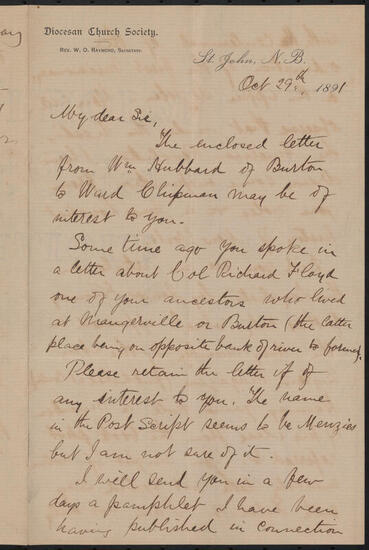 Diocesan Church Society.
Rev. W. O. Raymond, Secretary.
St. John, N.B.
Oct 29th, 1891
My dear Sir,
The enclosed letter
from Wm Hubbard of Burton
to Ward Chipman may be of
interest to you.
Some time ago you spoke in
a letter about Col Richard Floyd
one of your ancestors who lived
at Maugerville or Burton (the latter
place being on opposite bank of river to former).
Please retain the letter if of
any interest to you. The name
in the Post Script seems to be Menzies
but I am not sure of it.
I will send you in a few
days a pamphlet I have been
having published in connection